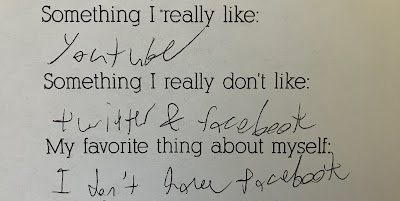 Something I really like:
Youtube
Something I really don't like:
twitter & facebook
My favorite thing about myself:
I don't have facebook